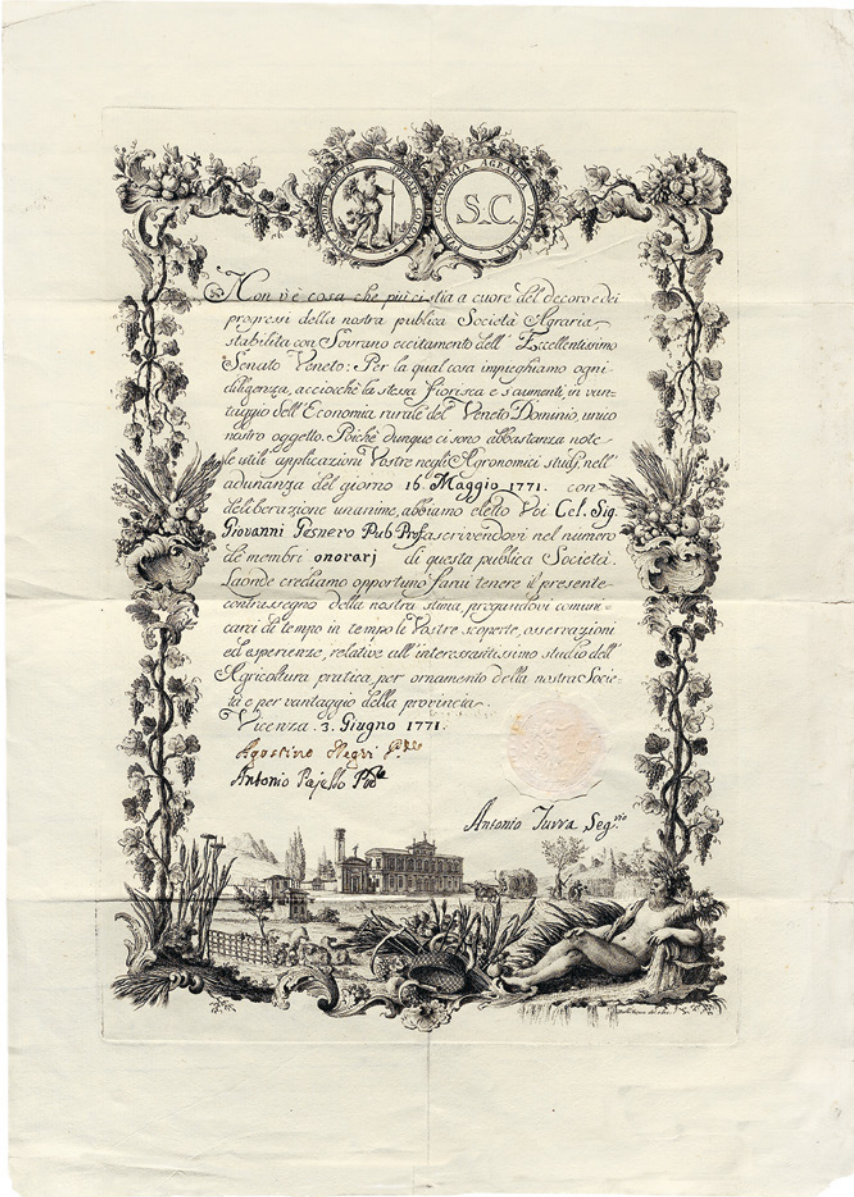 ACCADEMIA AGRARIA VICENTINA
S.C.
Non v'è cosa che più ci stia a cuore del decoro e dei
progressi della nostra publica Società Agraria,
stabilita con Sovrano eccitamento dell' Eccellentissimo
Senato Veneto: Per la qual cosa impieghiamo ogni
diligenza, acciocchè la stessa fiorisca e s'aumenti, in van-
taggio dell'Economia rurale del Veneto Dominio, unico
nostro oggetto. Poichè dunque ci sono abbastanza note
le utili applicazioni Vostre negli Agronomici studj, nell'
adunanza del giorno 16. Maggio 1771. con
deliberazione unanime, abbiamo eletto Voi Cel. Sig.
Giovanni Gesnero Pub. Prof. ascrivendovi nel numero
de' membri onorarj di questa publica Società.
Laonde crediamo opportuno farvi tenere il presente
contrassegno della nostra stima, pregandovi comuni-
carci di tempo in tempo le Vostre scoperte, osservazioni
ed esperienze, relative all'interessantissimo studio dell'
Agricoltura pratica, per ornamento della nostra Socie-
tà e per vantaggio della provincia.
Vicenza. 3. Giugno 1771.
Agostino Negri
Antonio Pajello
Antonio Turra Seg.rio